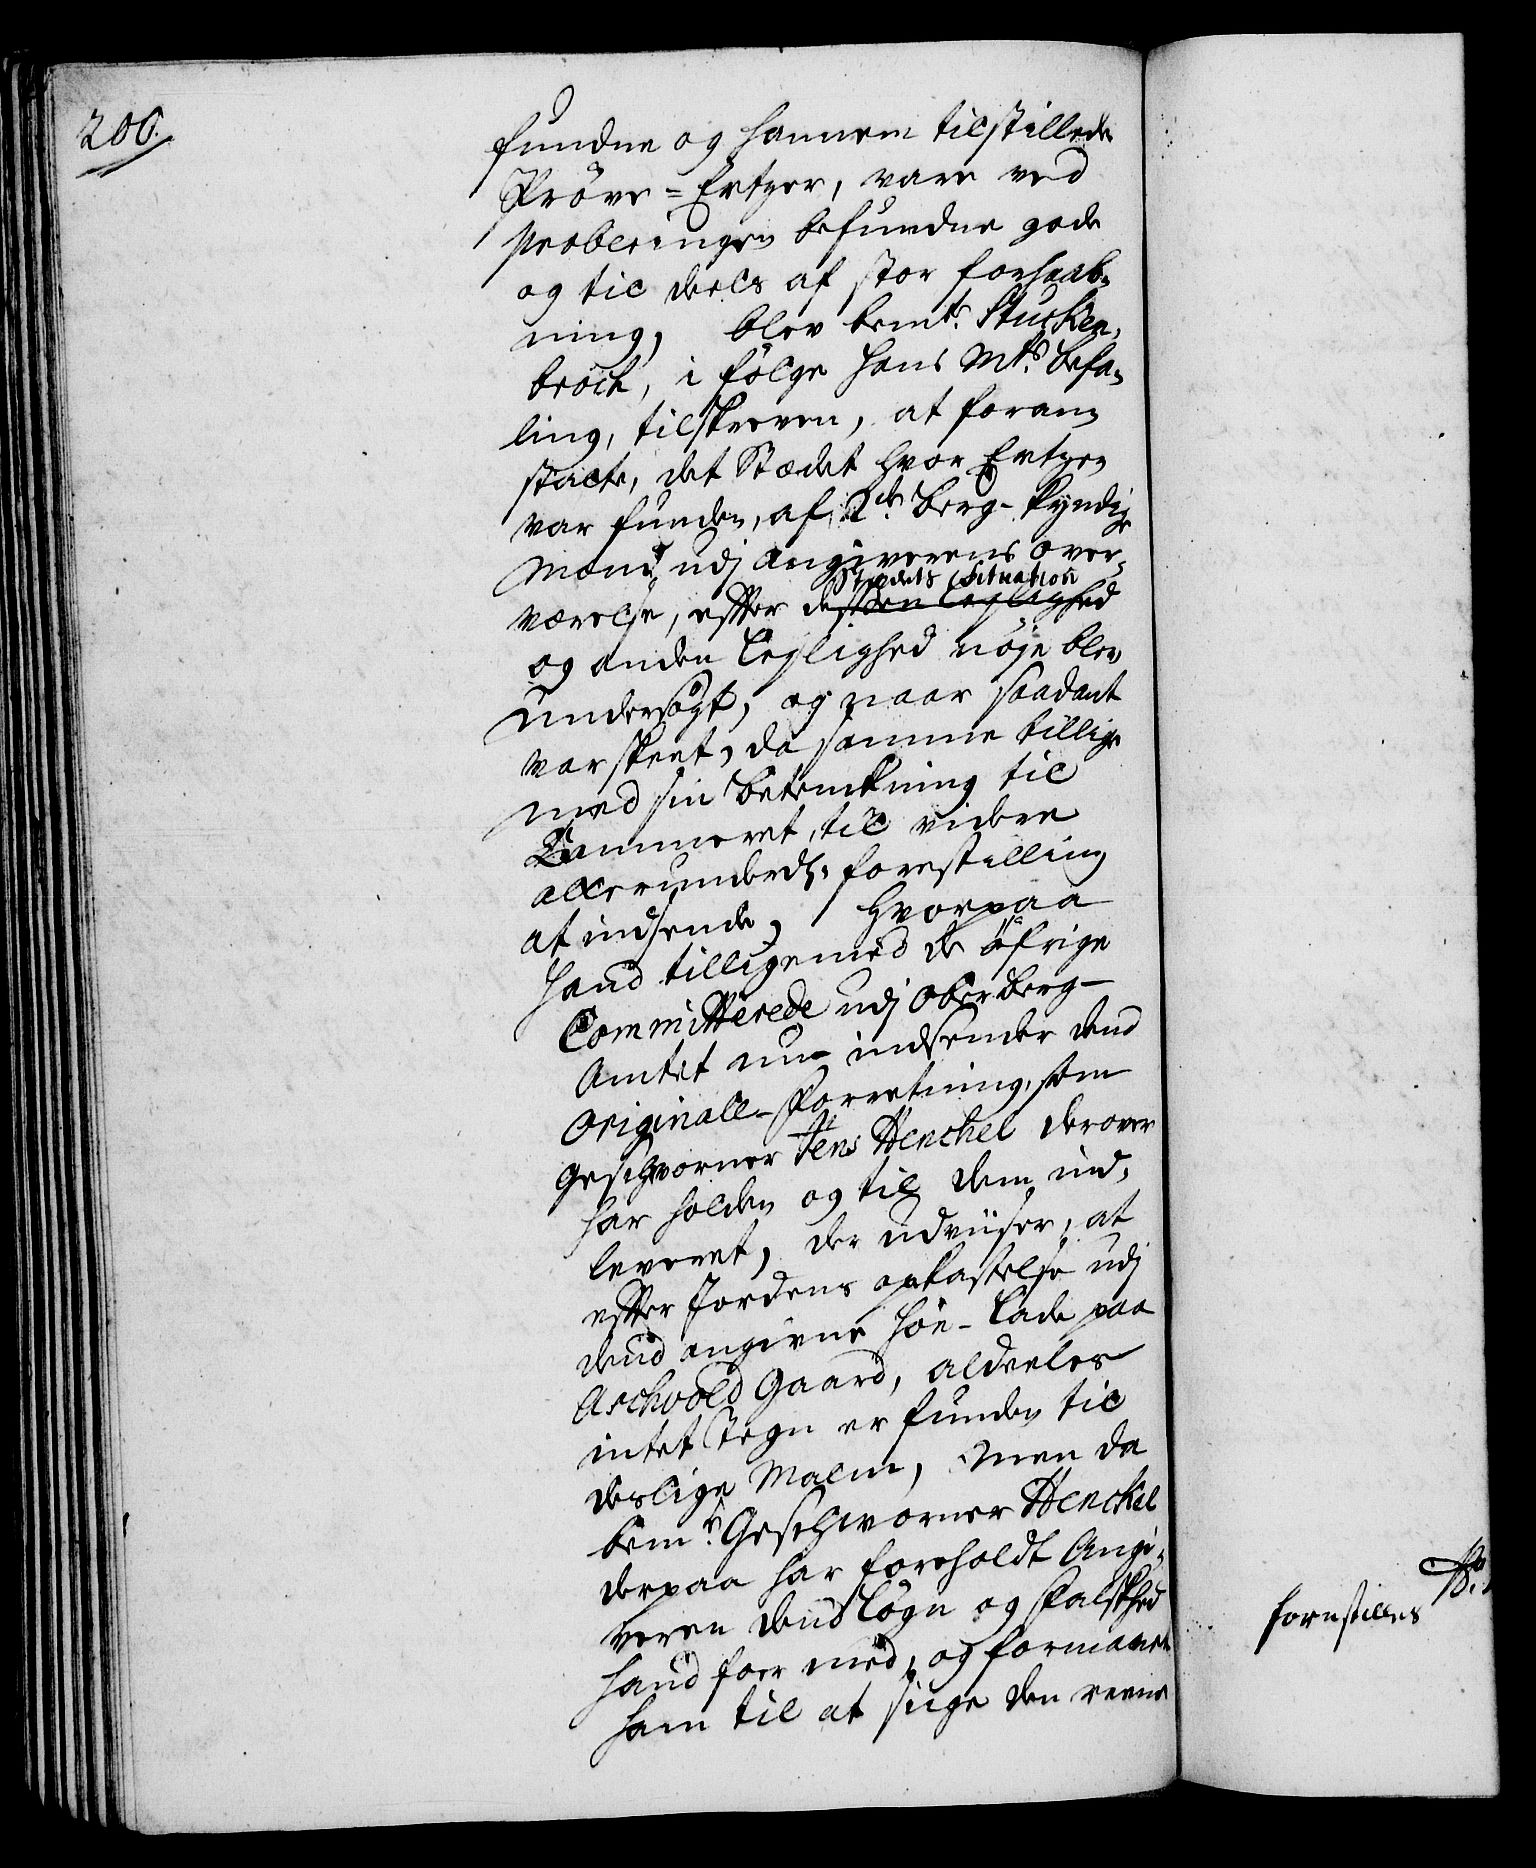 200.
fundne og hannem tilstillede
Prøve-Ertzer, vare ved
proberingen befundne gode
og til deels af stor forhaab-
ning, blev bemte Stucken-
brock, i følge Hans Mts befa-
ling, tilskreven, at foran-
stalte, det Stædet hvor Ertzen
var funden, af 2de Berg-kyndige
Mænd udj Angiverens over-
værelse, efter Stædets Situation
og anden Leylighed nøje blev
undersøgt, og naar saadant
var skeet, da samme tillige
med sin betenkning til
Cammeret, til videre
allerunderd. forestilling
at indsende, Hvorpaa
hand tilligemed de øfrige
Committerede udj Oberberg-
Amtet nu indsender dend
Originall-Forretning, som
Geschworner Jens Henchel derover
har holden og til dem ind-
leveret, der udviiser, at
efter Jordens opkastelse udj
dend angivne Høe-Lade paa
Aschvold Gaard, aldeeles
intet Tegn er funden til
deslige Malm, Men da
bemte Geschworner Henckel
derpaa har foreholdt Angi-
veren dend Løgn og Falskhed
hand foer med, og formanet
ham til at siige den reene
forestilles